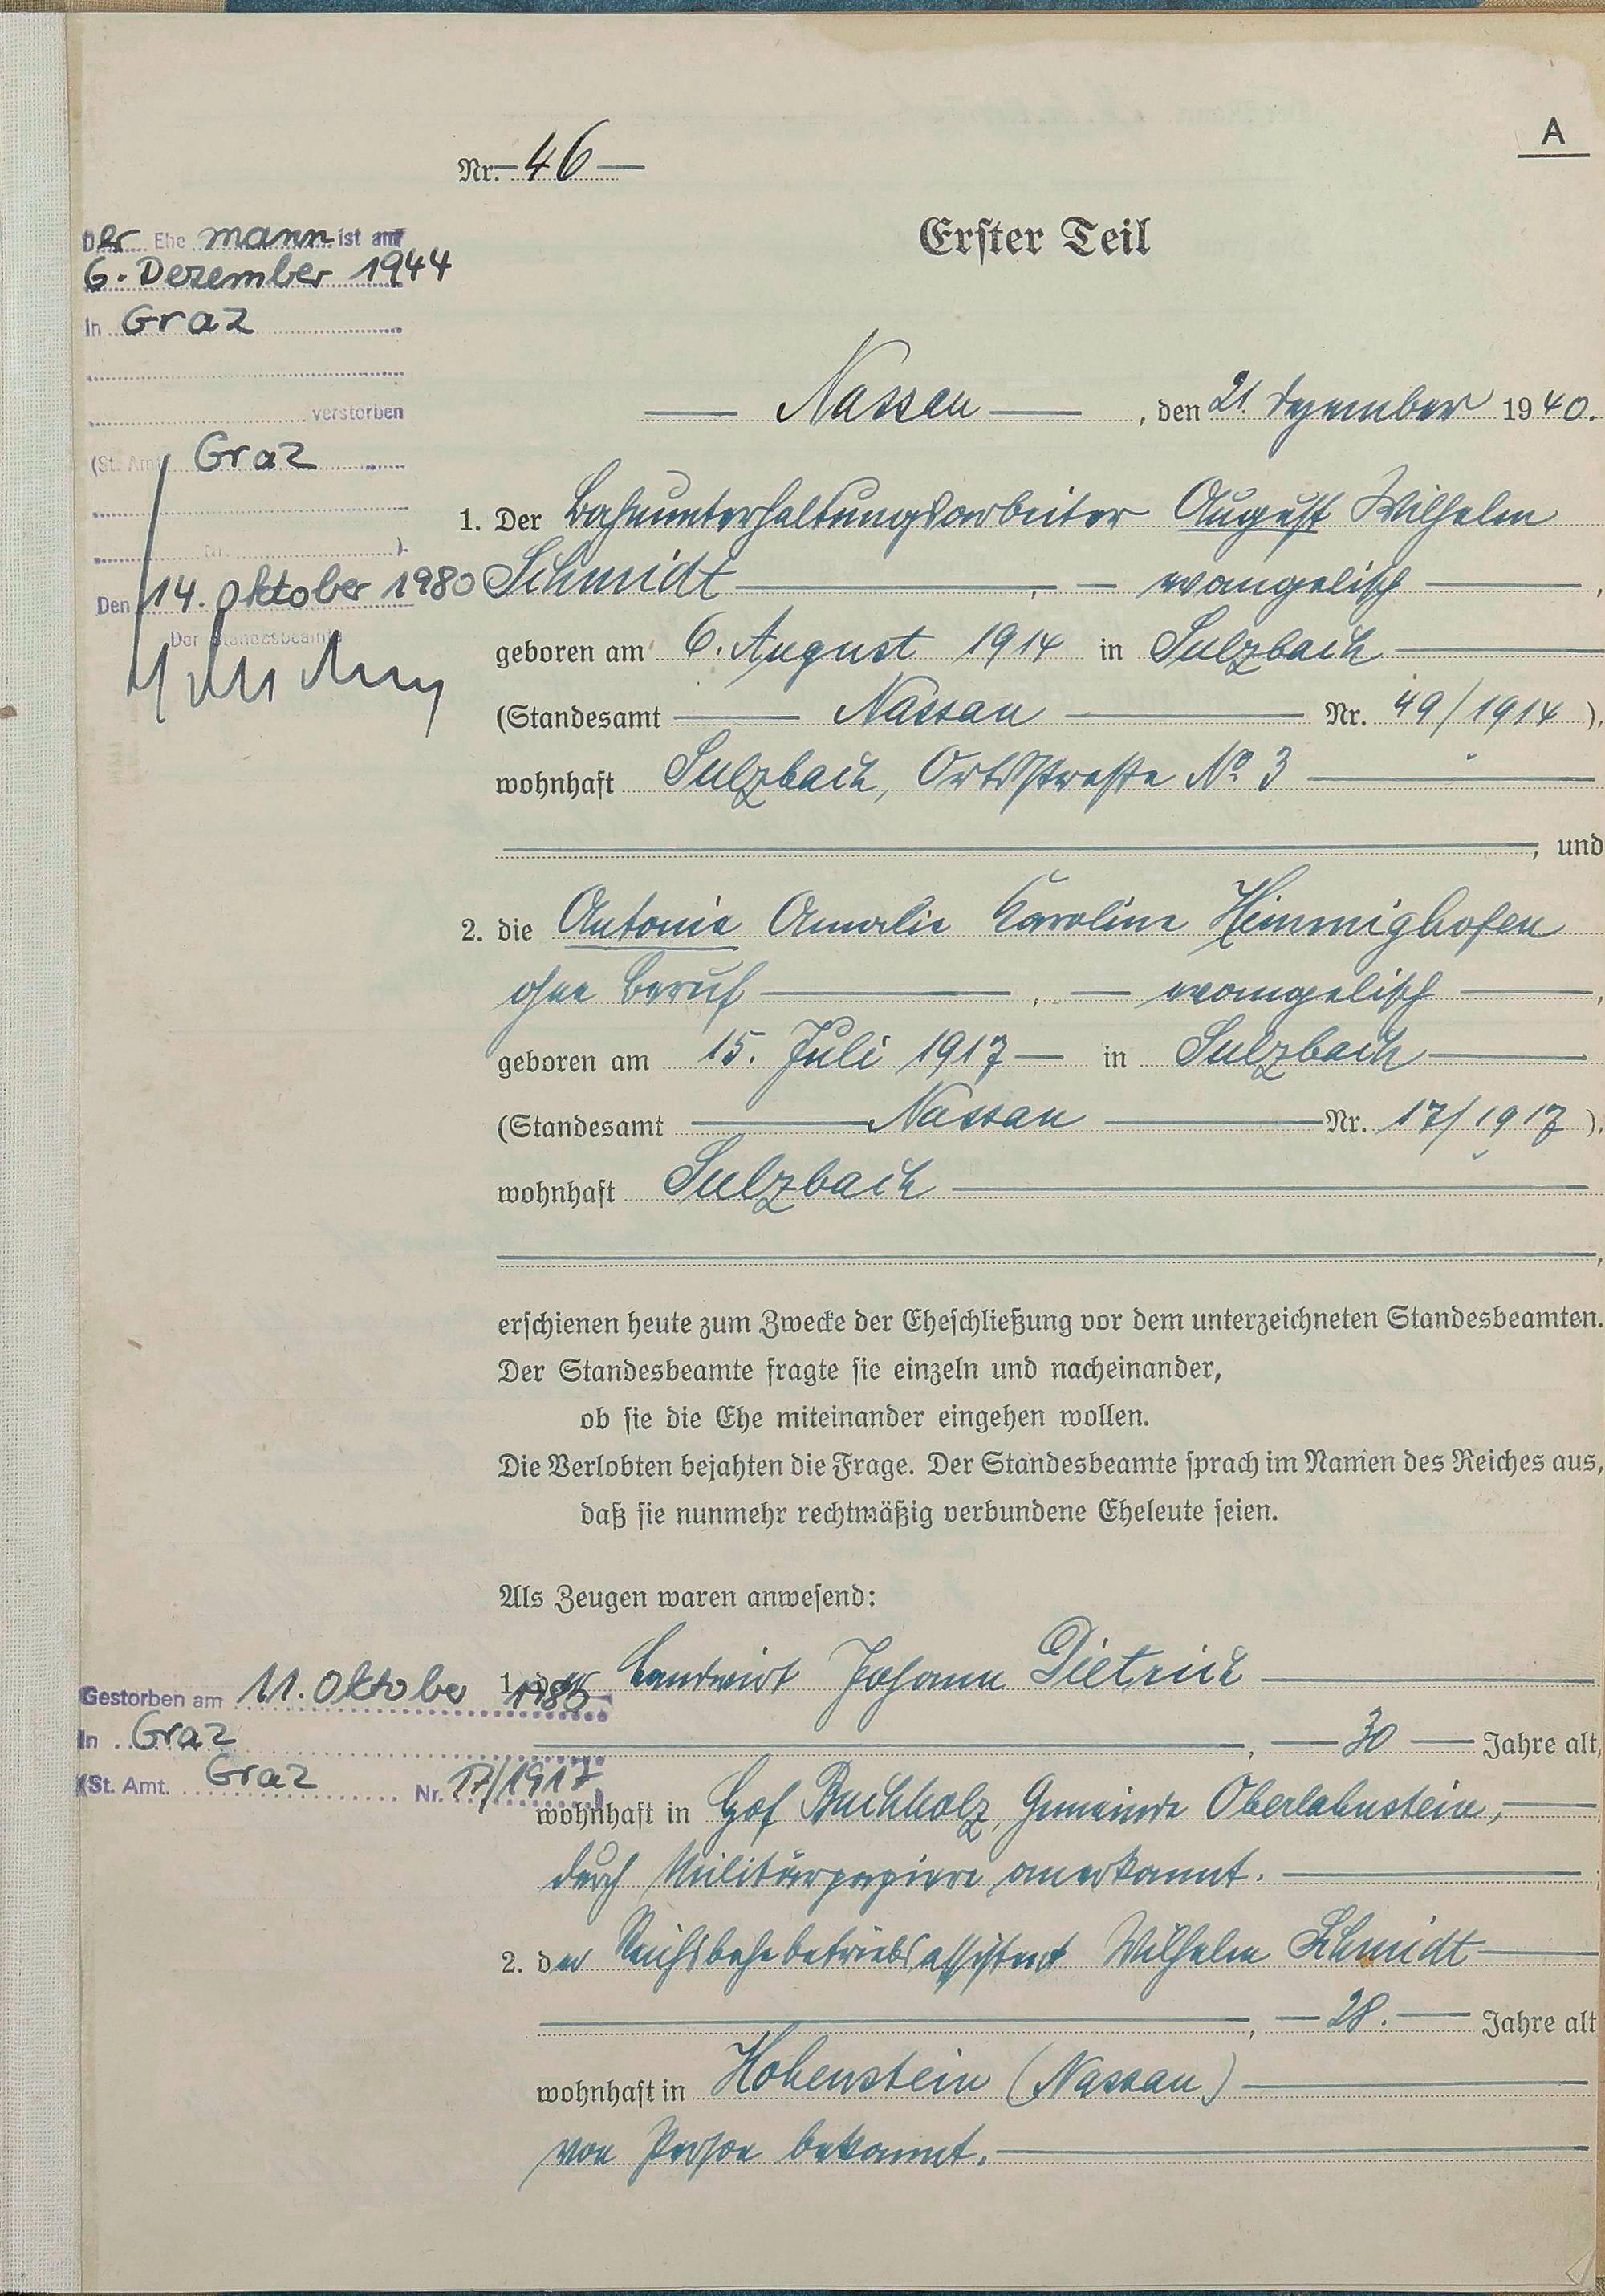 A
Nr. 46
Erster Teil
Der Ehe mann ist am
6. Dezember 1944
in Graz
verstorben
(St. Amt Graz
Nr. ).
Den 14. Oktober 1980
Der Standesbeamte
Nassau, den 21. Dezember 1940.
1. Der Bahnunterhaltungsarbeiter August Wilhelm
Schmidt, evangelisch,
geboren am 6. August 1914 in Sulzbach
(Standesamt Nassau Nr. 49/1914),
wohnhaft Sulzbach, Ortsstraße No. 3
, und
2. die Antonie Amalie Karoline Himmighofen
ohne Beruf, evangelisch,
geboren am 15. Juli 1917 in Sulzbach
(Standesamt Nassau Nr. 17/1917),
wohnhaft Sulzbach
,
erschienen heute zum Zwecke der Eheschließung vor dem unterzeichneten Standesbeamten.
Der Standesbeamte fragte sie einzeln und nacheinander,
ob sie die Ehe miteinander eingehen wollen.
Die Verlobten bejahten die Frage. Der Standesbeamte sprach im Namen des Reiches aus,
daß sie nunmehr rechtmäßig verbundene Eheleute seien.
Als Zeugen waren anwesend:
1. der Landwirt Johann Dietrich
, 30 Jahre alt,
wohnhaft in Hof Buchholz, Gemeinde Oberlahnstein,
durch Militärpapiere anerkannt.
2. der Reichsbahnbetriebsassistent Wilhelm Schmidt
, 28. Jahre alt
wohnhaft in Hohenstein (Nassau)
von Person bekannt.
Gestorben am 11. Oktober
in Graz
(St. Amt. Graz Nr. 17/1917)